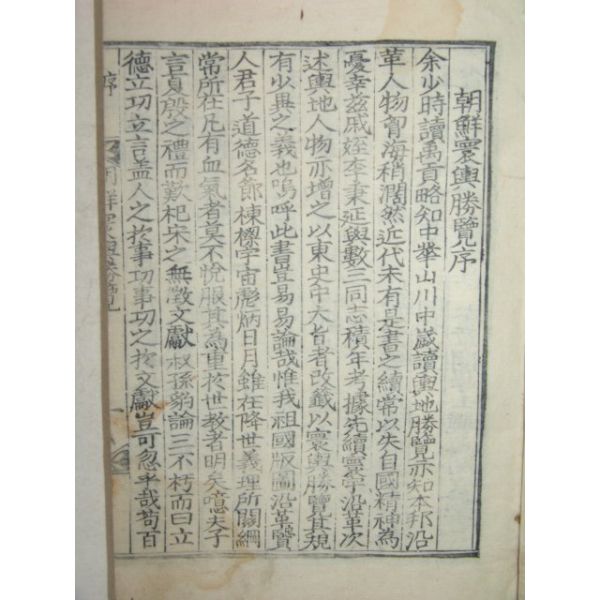 朝鮮寰輿勝覽序
余少時讀禹貢略知中華山川中歲讀輿地勝覽亦知本邦沿
革人物習海稍濶然近代未有是書之續常以失自國精神為
憂幸玆戚姪李秉延與數三同志積年考據先續寰宇沿革次
述輿地人物亦增之以東史中大旨者改籤以寰輿勝覽其規
有少異之義也嗚呼此書豈易易論哉惟我祖國版圖沿革賢
人君子道德名節棟樑宇宙彪炳日月雖在降世義理所關綱
常所在凡有血氣者莫不悅服其為重於世教者明矣噫夫子
言夏殷之禮而歎杞宋之無徵文獻叔孫豹論三不朽而曰立
德立功立言盖人之於事功事功之於文獻豈可忽乎哉苟百
序
朝鮮寰輿勝覽
一